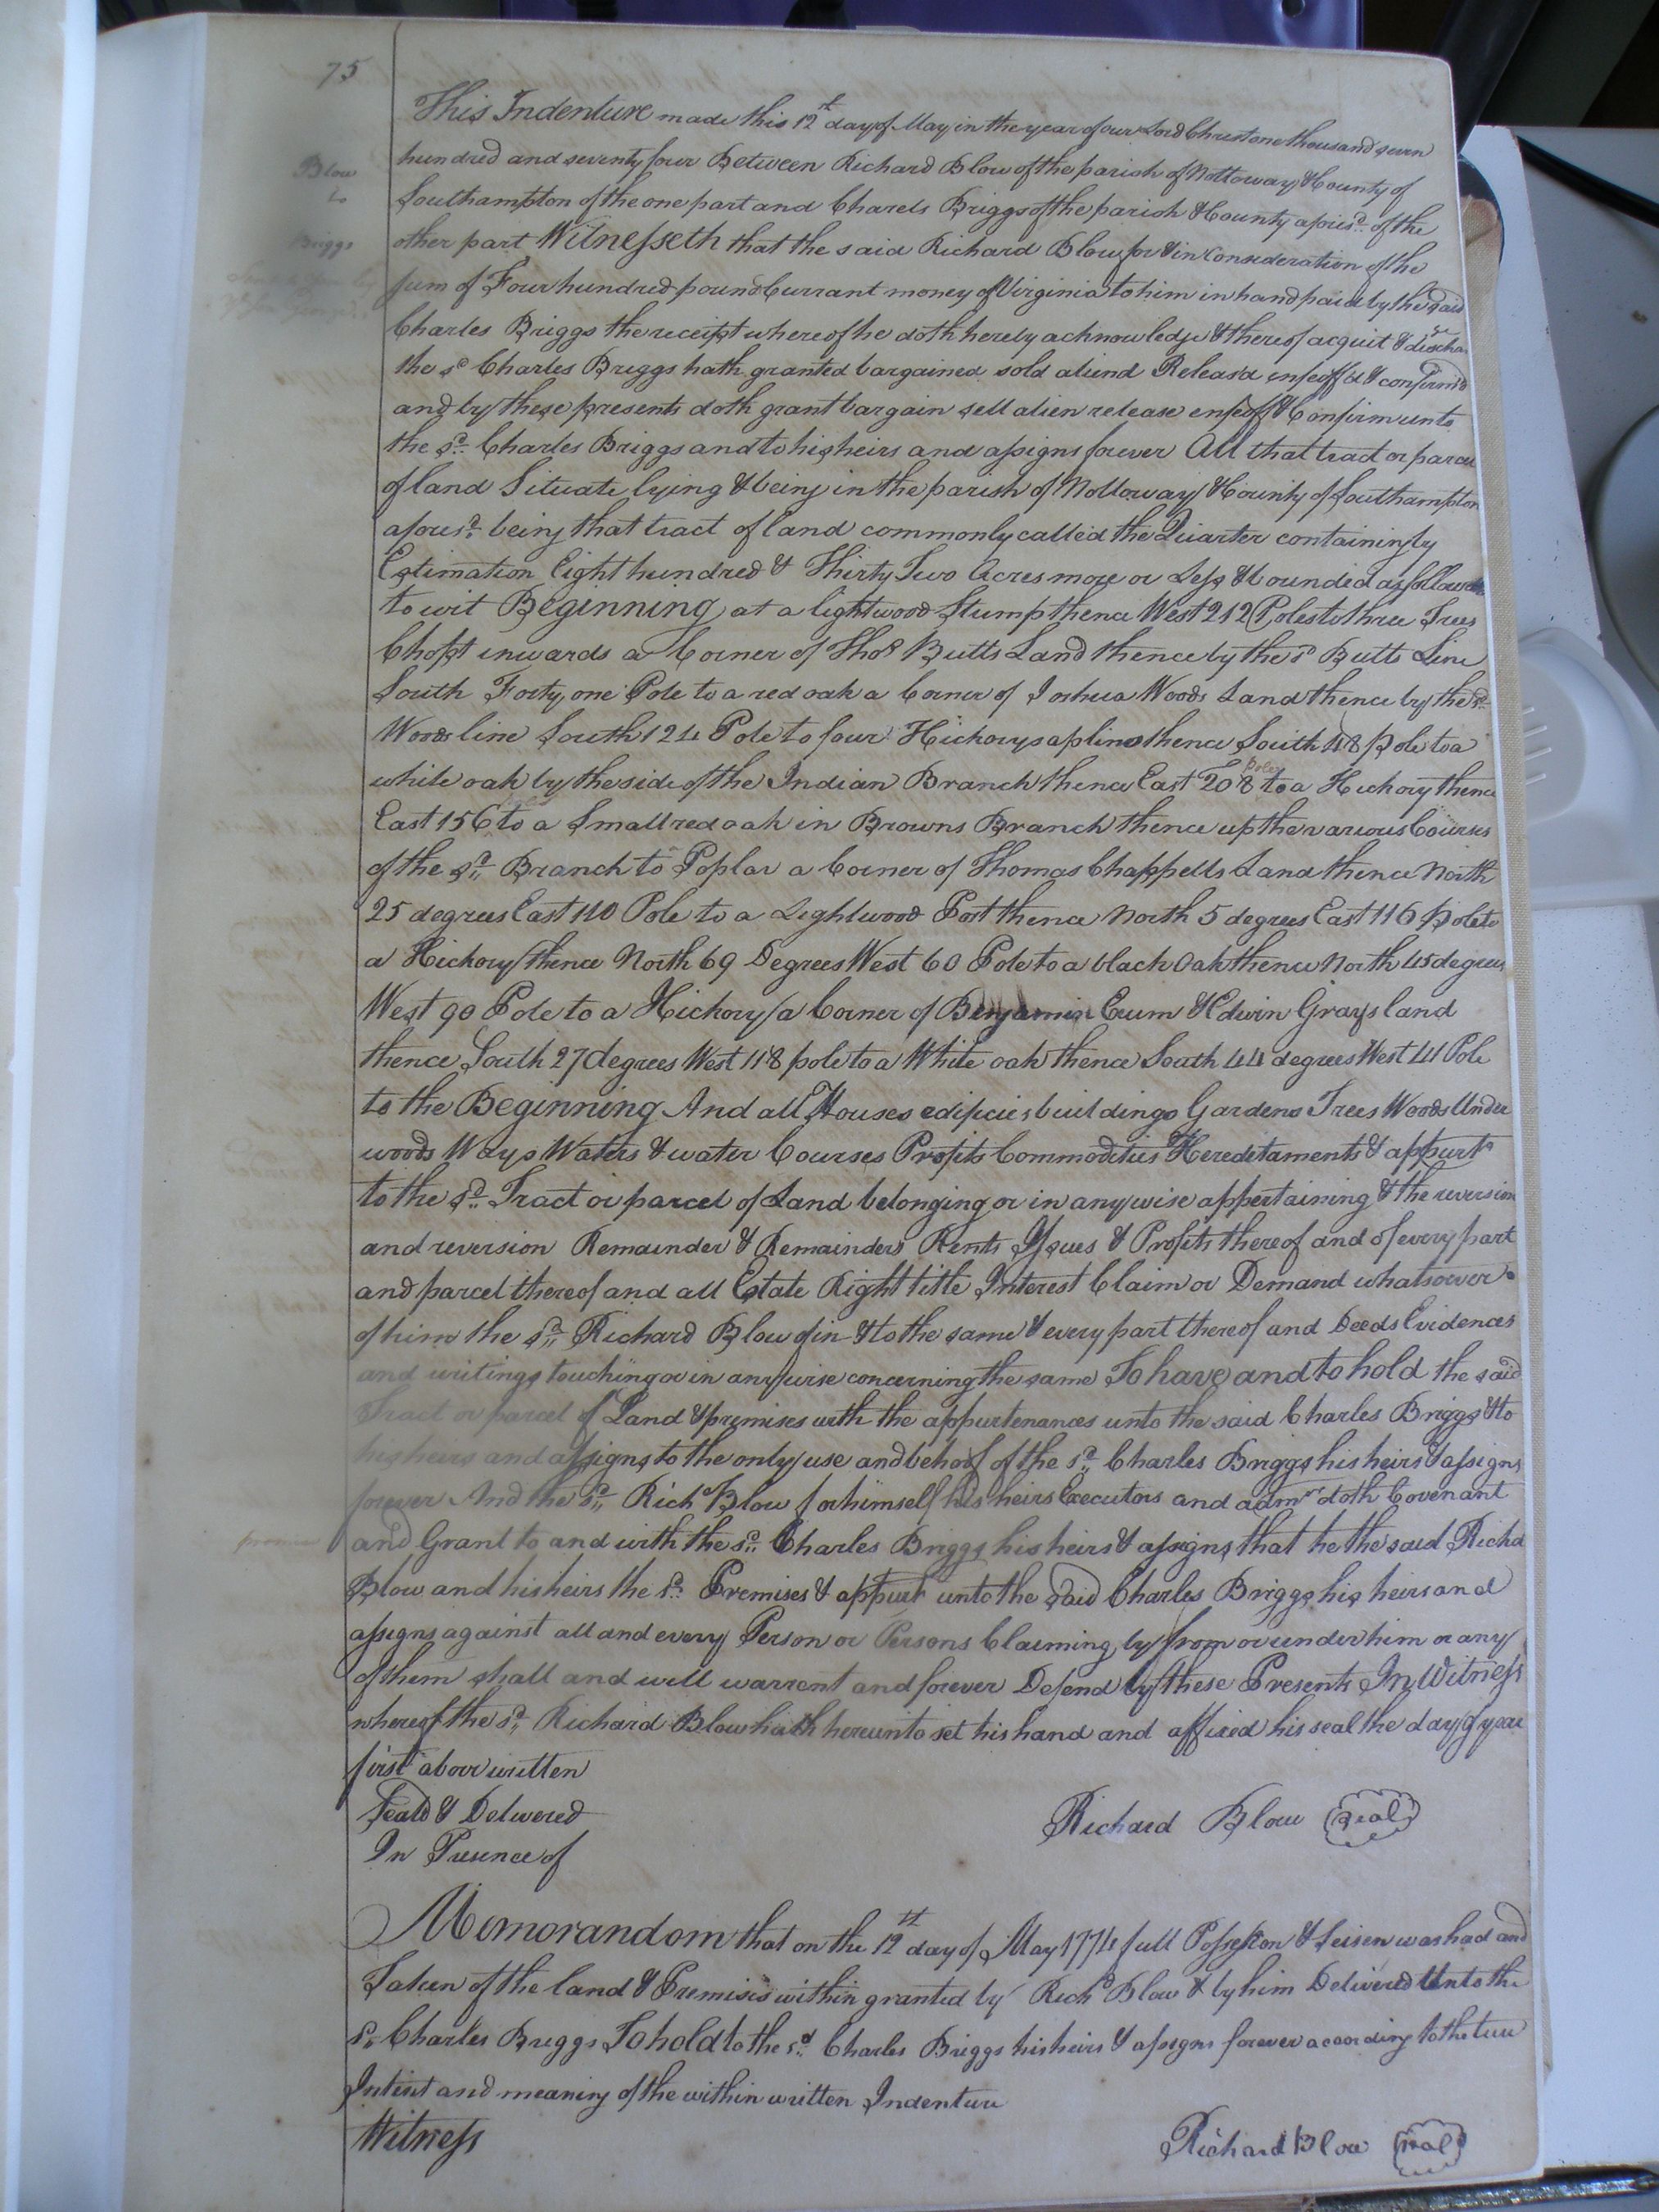 75
Blow
to
Briggs
This Indenture made this 12th day of May in the year of our Lord Christ one thousand seven
hundred and seventy four Between Richard Blow of the parish of Nottoway & County of
Southampton of the one part and Charels Briggs of the parish & County aforesd. of the
other part Witnesseth that the said Richard Blow for & in consideration of the
sum of Four hundred pound Currant money of Virginia to him in hand paid by the said
Charles Briggs the receipt whereof he doth hereby acknowledge & thereof acquit & discharge
the sd Charles Briggs hath granted bargained sold aliend Releas'd enfeoff'd & confirm'd
and by these presents doth grant bargain sell alien release enfeoff & Confirm unto
the sd. Charles Briggs and to his heirs and assigns forever All that tract or parcel
of land Situate lying & being in the parish of Nottoway & County of Southampton
aforesd. being that tract of land commonly called the Quarter containing by
Estimation Eight hundred & Thirty Two Acres more or Less & bounded as followeth
to wit Beginning at a lightwood Stump thence West 212 Poles to three Trees
Chopt inwards a Corner of Thos Butts Land thence by the sd Butts Line
South Forty one Pole to a red oak a Corner of Joshua Woods Land thence by the sd.
Woods line South 124 Pole to four Hickory saplins thence South 48 Pole to a
white oak by the side of the Indian Branch thence East 208 Poles to a Hickory thence
East 156 to a Small red oak in Browns Branch thence up the various Courses
of the sd. Branch to Poplar a Corner of Thomas Chappells Land thence North
25 degrees East 110 Pole to a Lightwood Post thence North 5 degrees East 116 Pole to
a Hickory thence North 69 Degrees West 60 Pole to a black Oak thence North 45 degrees
West 90 Pole to a Hickory a Corner of Benjamin Crum & Edwin Grays land
thence South 27 degrees West 118 pole to a White oak thence South 44 degrees West 41 Pole
to the Beginning And all Houses edificies buildings Gardens Trees Woods Under
woods Ways Waters & water Courses Profits Commodities Hereditaments & appurts
to the sd. Tract or parcel of Land belonging or in any wise appertaining & the reversion
and reversion Remainder & Remainders Rents Issues & Profits thereof and of every part
and parcel thereof and all Estate Right title Interest Claim or Demand whatsoever
of him the sd. Richard Blow of in & to the same & every part thereof and Deeds Evidences
and writings touching or in any wise concerning the same To have and to hold the said
Tract or parcel of Land & premises with the appurtenances unto the said Charles Briggs & to
his heirs and assigns to the only use and behoof of the sd. Charles Briggs his heirs & assigns
forever And the sd. Richd Blow for himself his heirs Executors and admrs doth Covenant
and Grant to and with the sd. Charles Briggs his heirs & assigns that he the said Richd
Blow and his heirs the sd. Premises & appurts unto the said Charles Briggs his heirs and
assigns against all and every Person or Persons Claiming by from or under him or any
of them shall and will warrent and forever Defend by these Presents In Witness
whereof the sd. Richard Blow hath hereunto set his hand and affixed his seal the day & year
first above written
Seald & Delivered
In Presence of
Richard Blow Seal
Memorandom that on the 12th day of May 1774 full Possession & Seisen was had and
Taken of the land & Premisis within granted by Richd Blow & by him Delivered Unto the
sd. Charles Briggs To hold to the sd. Charles Briggs his heirs & assigns forever according to the true
Intent and meaning of the within written Indenture
Witness
Richard Blow Seal